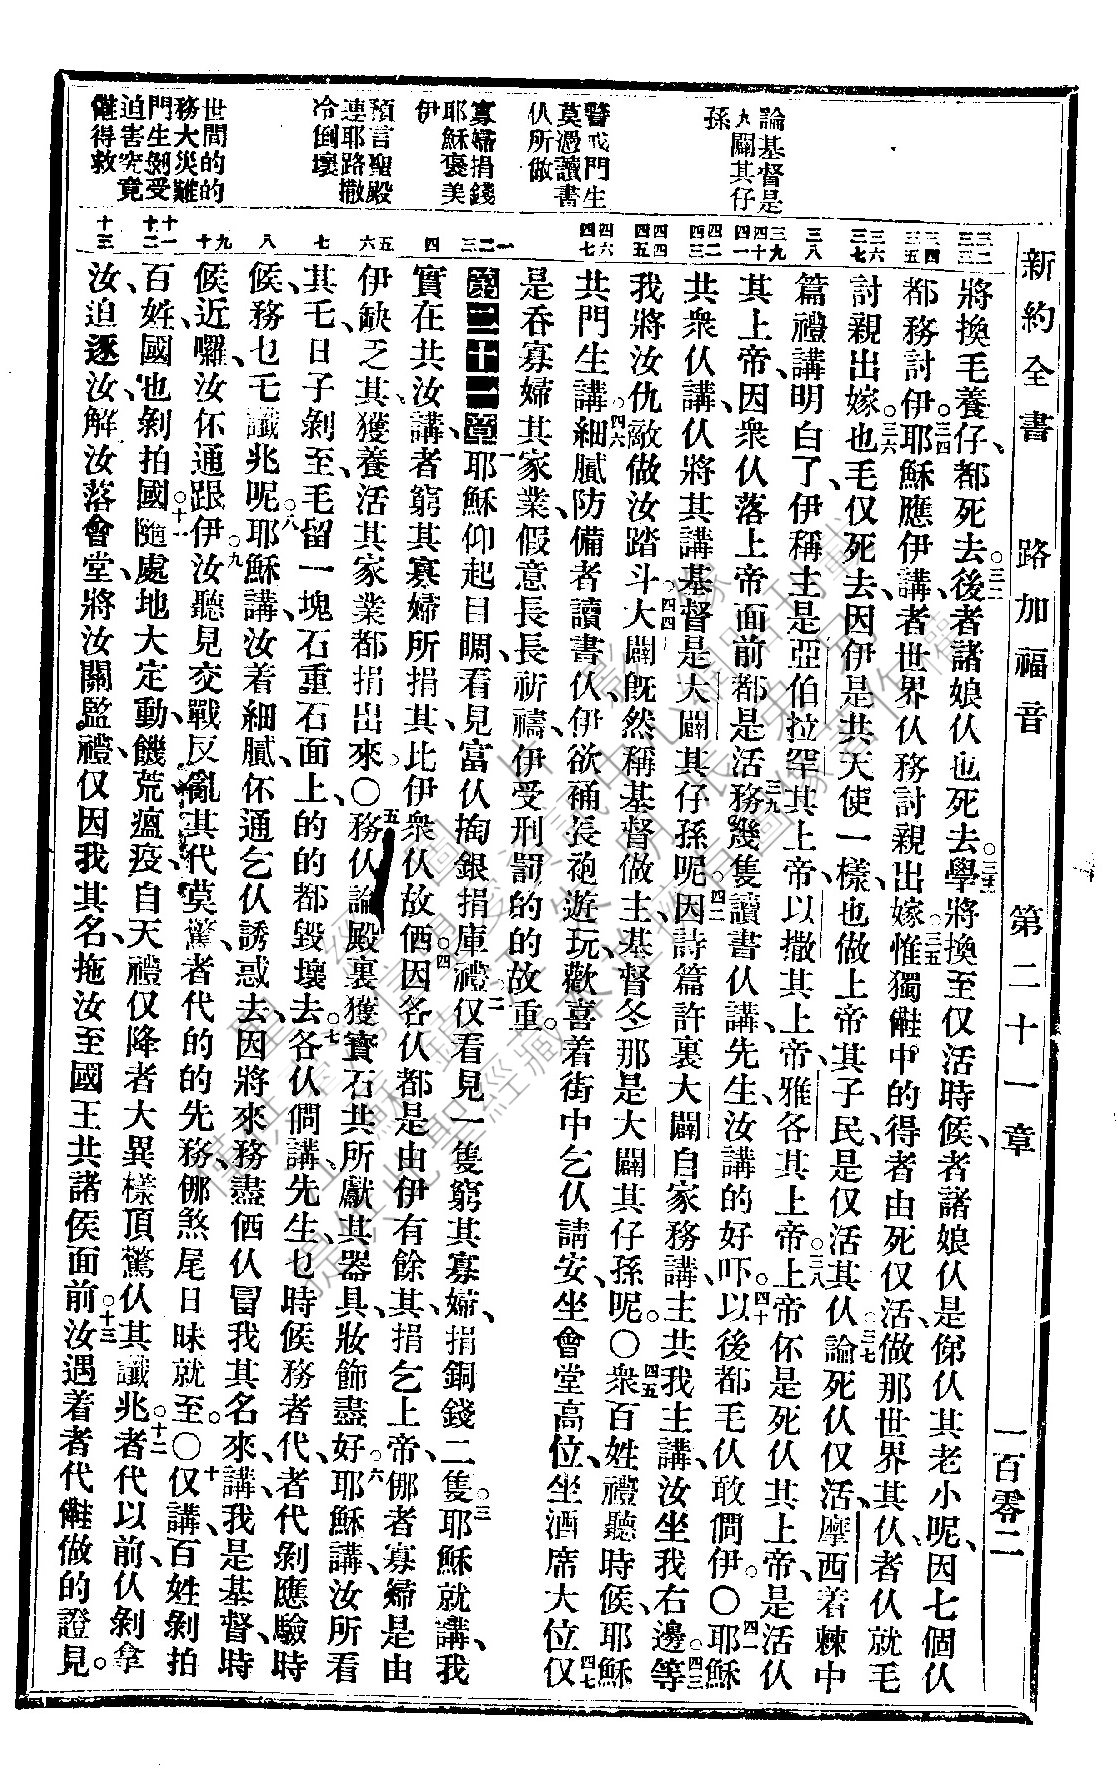 新約全書 路加福音 第二十一章 一百零二
論基督是
大闢其仔
孫
警戒門生
莫憑讀書
仈所做
寡婦捐錢
耶穌褒美
伊
預言聖殿
連耶路撒
冷倒壞
世間的的
務大災難
門生剝受
迫害究竟
得救
將換毛養仔、都死去。三二後者諸娘仈也死去。三三學將換至仅活時候、者諸娘仈是俤仈其老小呢、因七個仈
都務討伊。三四耶穌應伊講、者世界仈務討親出嫁、三五惟獨中的得者由死仅活、做那世界其仈、者仈就毛
討親出嫁、三六也毛仅死去、因伊是共天使一樣、也做上帝其子民、是仅活其仈。三七論死仈仅活、摩西着棘中
篇禮講明白了、伊稱主是亞伯拉罕其上帝、以撒其上帝、雅各其上帝。三八上帝伓是死仈其上帝、是活仈
其上帝、因衆仈落上帝面前都是活。三九務幾隻讀書仈講、先生、汝講的好吓。四十以後都毛仈敢倜伊。〇四一耶穌
共衆仈講、仈將其講基督是大闢其仔孫呢。四二因詩篇許裏大闢自家務講、主共我主講、汝坐我右邊、四三等
我將汝仇敵做汝踏斗。四四大闢旣然稱基督做主、基督冬那是大闢其仔孫呢。〇四五衆百姓禮聽時候、耶穌
共門生講、四六細膩防備者讀書仈、伊欲補長袍遊玩、歡喜着街中乞仈請安、坐會堂高位、坐酒席大位、四七仅
是吞寡婦其家業、假意長長祈禱、伊受刑罰的的故重。
第二十一章 一耶穌仰起目睭、看見富仈掏銀捐庫禮、二仅看見一隻窮其寡婦、捐銅錢二隻。三耶穌就講、我
實在共汝講、者窮其寡婦所捐其、比伊衆仈故価、四因各仈都是由伊有餘其、捐乞上帝、倻者寡婦是由
伊缺乏其、獲養活其家業都捐出來。〇五務仈論殿裏獲寶石、共所獻其器具、妝飾盡好、六耶穌講、汝所看
其乇、日子剝至、毛留一塊石重石面上、的的都毀壞去。七各仈倜講、先生、乜時候務者代、者代剝應驗時
候、務乜乇讖兆呢。八耶穌講、汝着細膩、伓通乞仈誘惑去、因將來務盡価仈冒我其名來、講我是基督、時
候近囉、汝伓通跟伊。九汝聽見交戰反亂其代、莫驚、者代的的先務、倻煞尾日昧就至。〇十仅講、百姓剝拍
百姓、國也剝拍國。十一隨處地大定動、饑荒瘟疫、自天禮仅降者大異樣頂驚仈其讖兆。十二者代以前、仈剝拿
汝、迫逐汝、解汝落會堂、將汝關監禮、仅因我其名、拖汝至國王共諸侯面前。十三汝遇着者代做的證見。